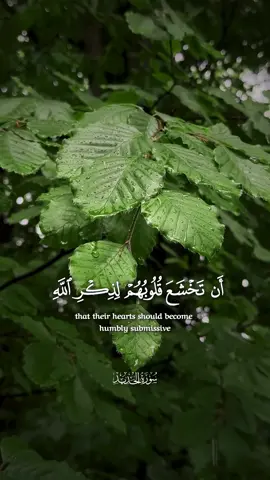 أَن تَخْشَعَ قُلُوبُهُمْ لِذِكْرِ ٱللَّهِ
that their hearts should become
humbly submissive
سُورَةُ الحَدِيد